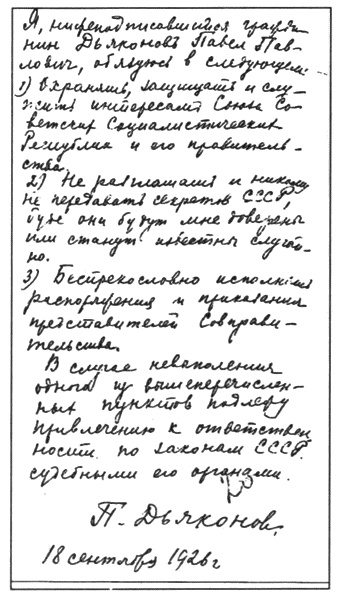 Я, нижеподписавшийся гражда-
нин Дьяконовъ Павел Пав-
лович, обязуюсь в следующем:
1) Охранять, защищать и слу-
жить интересам Союза Со-
ветских Социалистических
Республик и его правитель-
ства.
2) Не разглашать и никому
не передавать секретов СССР,
буде они будут мне доверены
или станут известны случай-
но.
3) Беспрекословно исполнять
распоряжения и приказания
представителей Совправи-
тельства.
В случае невыполнения
одного из вышеперечислен-
ных пунктов подлежу
привлечению к ответствен
ности по законам СССР.
судебными его органами.
П. Дьяконов.
18 сентября 1926 г